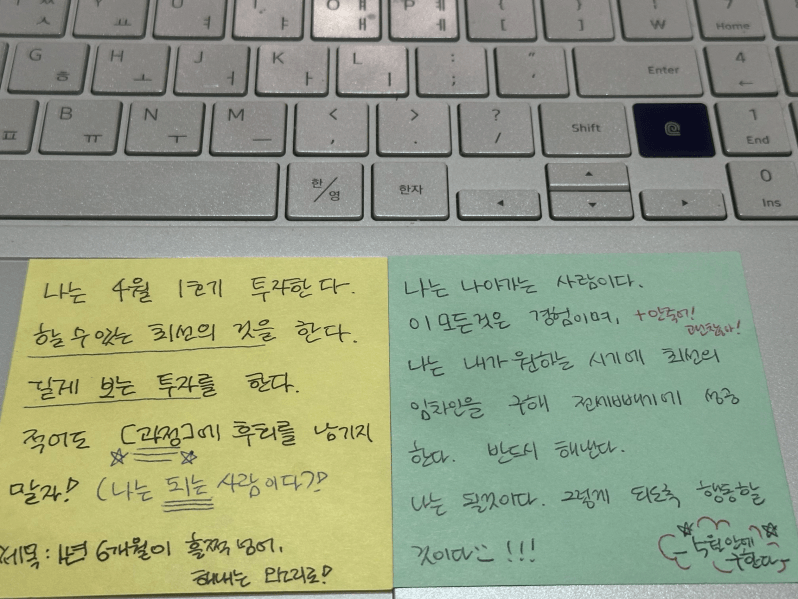 ㅛ ㅕ ㅑ ㅒ ㅐ ㅖ ㅔ [ ] ₩ Home
G ㅎ H ㅗ J ㅓ K ㅏ L ㅣ : ; " ' Enter 4 ←
ㅍ B ㅠ N ㅜ M ㅡ < , > . ? / Shift 1 End
한/영 한자 0 Ins
나는 4월 1호기 투자한다.
할 수 있는 최선의 것을 한다.
길게 보는 투자를 한다.
적어도 [과정]에 후회를 남기지
말자! (나는 되는 사람이다?!
제목: 1년 6개월이 훌쩍 넘어,
해내는
나는 나아가는 사람이다.
이 모든것은 경험이며, +안죽어!
괜찮아!
나는 내가 원하는 시기에 최선의
임차인을 구해 전세빼기에 성공
한다. 반드시 해낸다.
나는 될것이다. 그렇게 되도록 행동할
것이다 :) !!!
5월안에
구한다